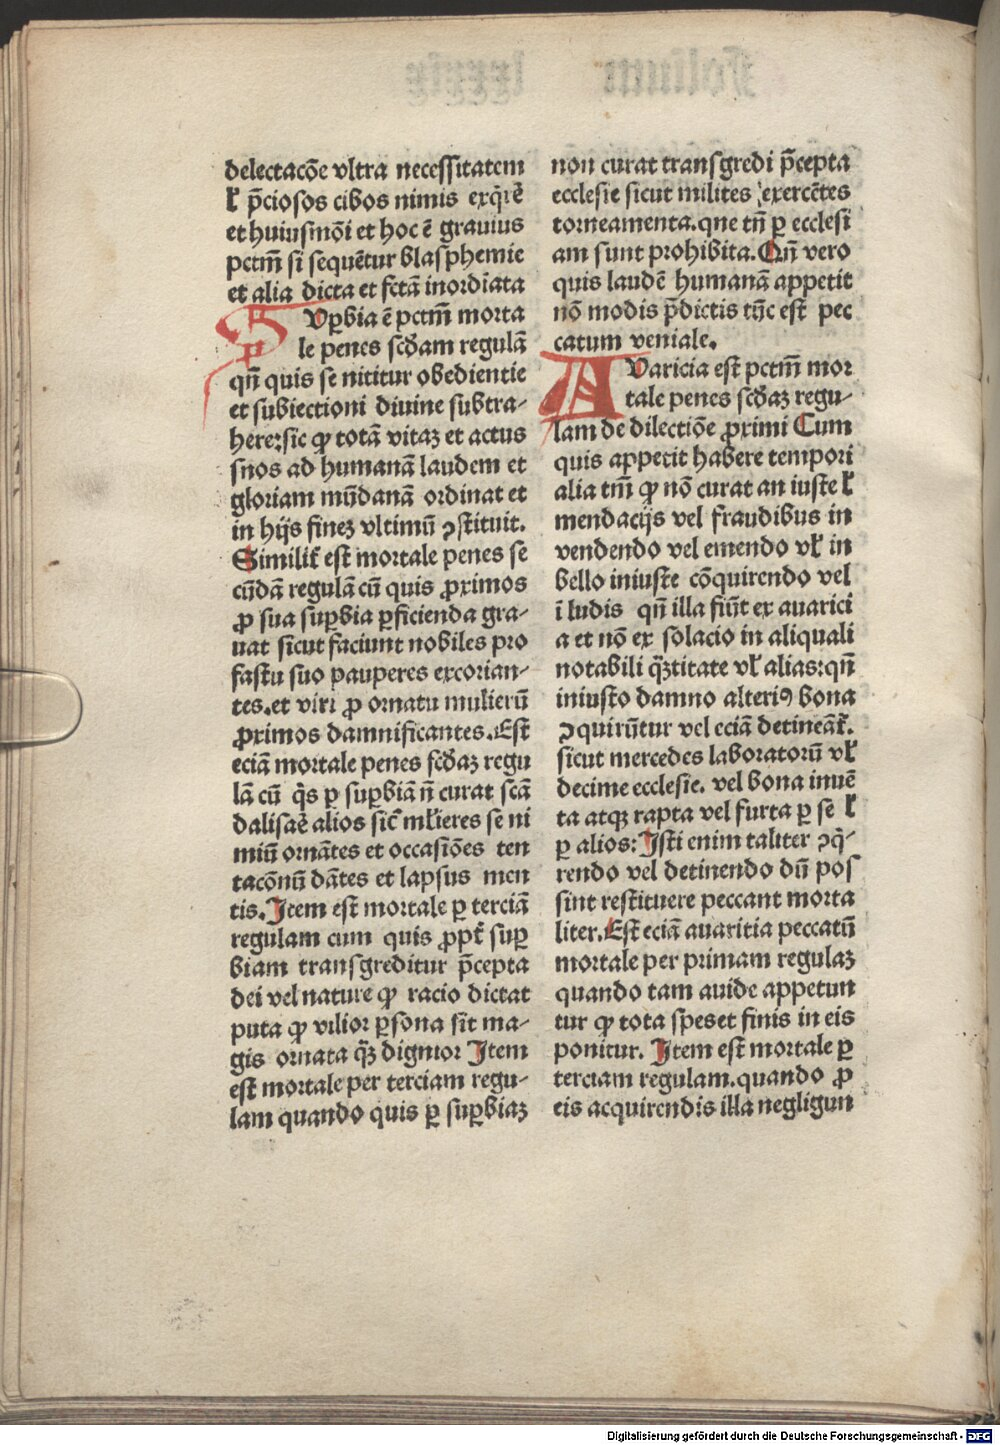 delectacōe vltra necessitatem
ƚ p̄ciosos cibos nimis exq̄rē
et huiusmōi et hoc ē grauius
pctm̄ si sequēt᷑ blasphemie
et alia dicta et fctā inordiata
SVꝑbia ē pctm̄ morta
le penes scd̄am regulā
qn̄ quis se nititur obedientie
et subiectioni diuine subtra-
here: sic ꝙ totā vitaꝫ et actus
snos ad humanā laudem et
gloriam mūdanā ordinat et
in hijs fineꝫ vltimū ꝯstituit.
Similit᷑ est mortale penes se
cūdā regulā cū quis ꝓximos
ꝓ sua suꝑbia ꝑficienda gra-
uat sicut faciunt nobiles pro
fastu suo pauperes excorian-
tes. et viri ꝓ ornatu mulierū
ꝓximos damnificantes. Est
eciā mortale penes scd̄aꝫ regu
lā cū q̄s ꝑ suꝑbiā n̄ curat scā
dalisaē alios sic̄ mƚieres se ni
miū ornātes et occasiōes ten
tacōnū dātes et lapsus men
tis. Item est mortale ꝑ terciā
regulam cum quis ꝓpt᷑ suꝑ
biam transgreditur p̄cepta
dei vel nature ꝙ racio dictat
puta ꝙ vilior ꝑsona sit ma-
gis ornata q̄ꝫ dignior Item
est mortale per terciam regu-
lam quando quis ꝑ suꝑbiaꝫ
non curat transgredi p̄cepta
ecclesie sicut milites exercētes
torneamenta. que tn̄ ꝑ ecclesi
am sunt prohibita. Qn̄ vero
quis laudē humanā appetit
nō modis p̄dictis tūc est pec
catum veniale.
AVaricia est pctm̄ mor
tale penes scd̄aꝫ regu-
lam de dilectiōe ꝓximi Cum
quis appetit habere tempori
alia tm̄ ꝙ nō curat an iuste ƚ
mendacijs vel fraudibus in
vendendo vel emendo vƚ in
bello iniuste cōquirendo vel
ī ludis qn̄ illa fiūt ex auarici
a et nō ex solacio in aliquali
notabili q̄ꝫtitate vƚ alias: qn̄
iniusto damno alteriꝰ bona
ꝯquirūtur vel eciā detineāt᷑.
sicut mercedes laboratorū vƚ
decime ecclesie. vel bona inuē
ta atqꝫ rapta vel furta ꝑ se ƚ
ꝑ alios: Isti enim taliter ꝯq̄-
rendo vel detinendo dū pos
sint restituere peccant morta
liter. Est eciā auaritia peccatū
mortale per primam regulaꝫ
quando tam auide appetun
tur ꝙ tota spes et finis in eis
ponitur. Item est mortale ꝑ
terciam regulam. quando ꝓ
eis acquirendis illa negligun
Digitalisierung gefördert durch die Deutsche Forschungsgemeinschaft - DFG